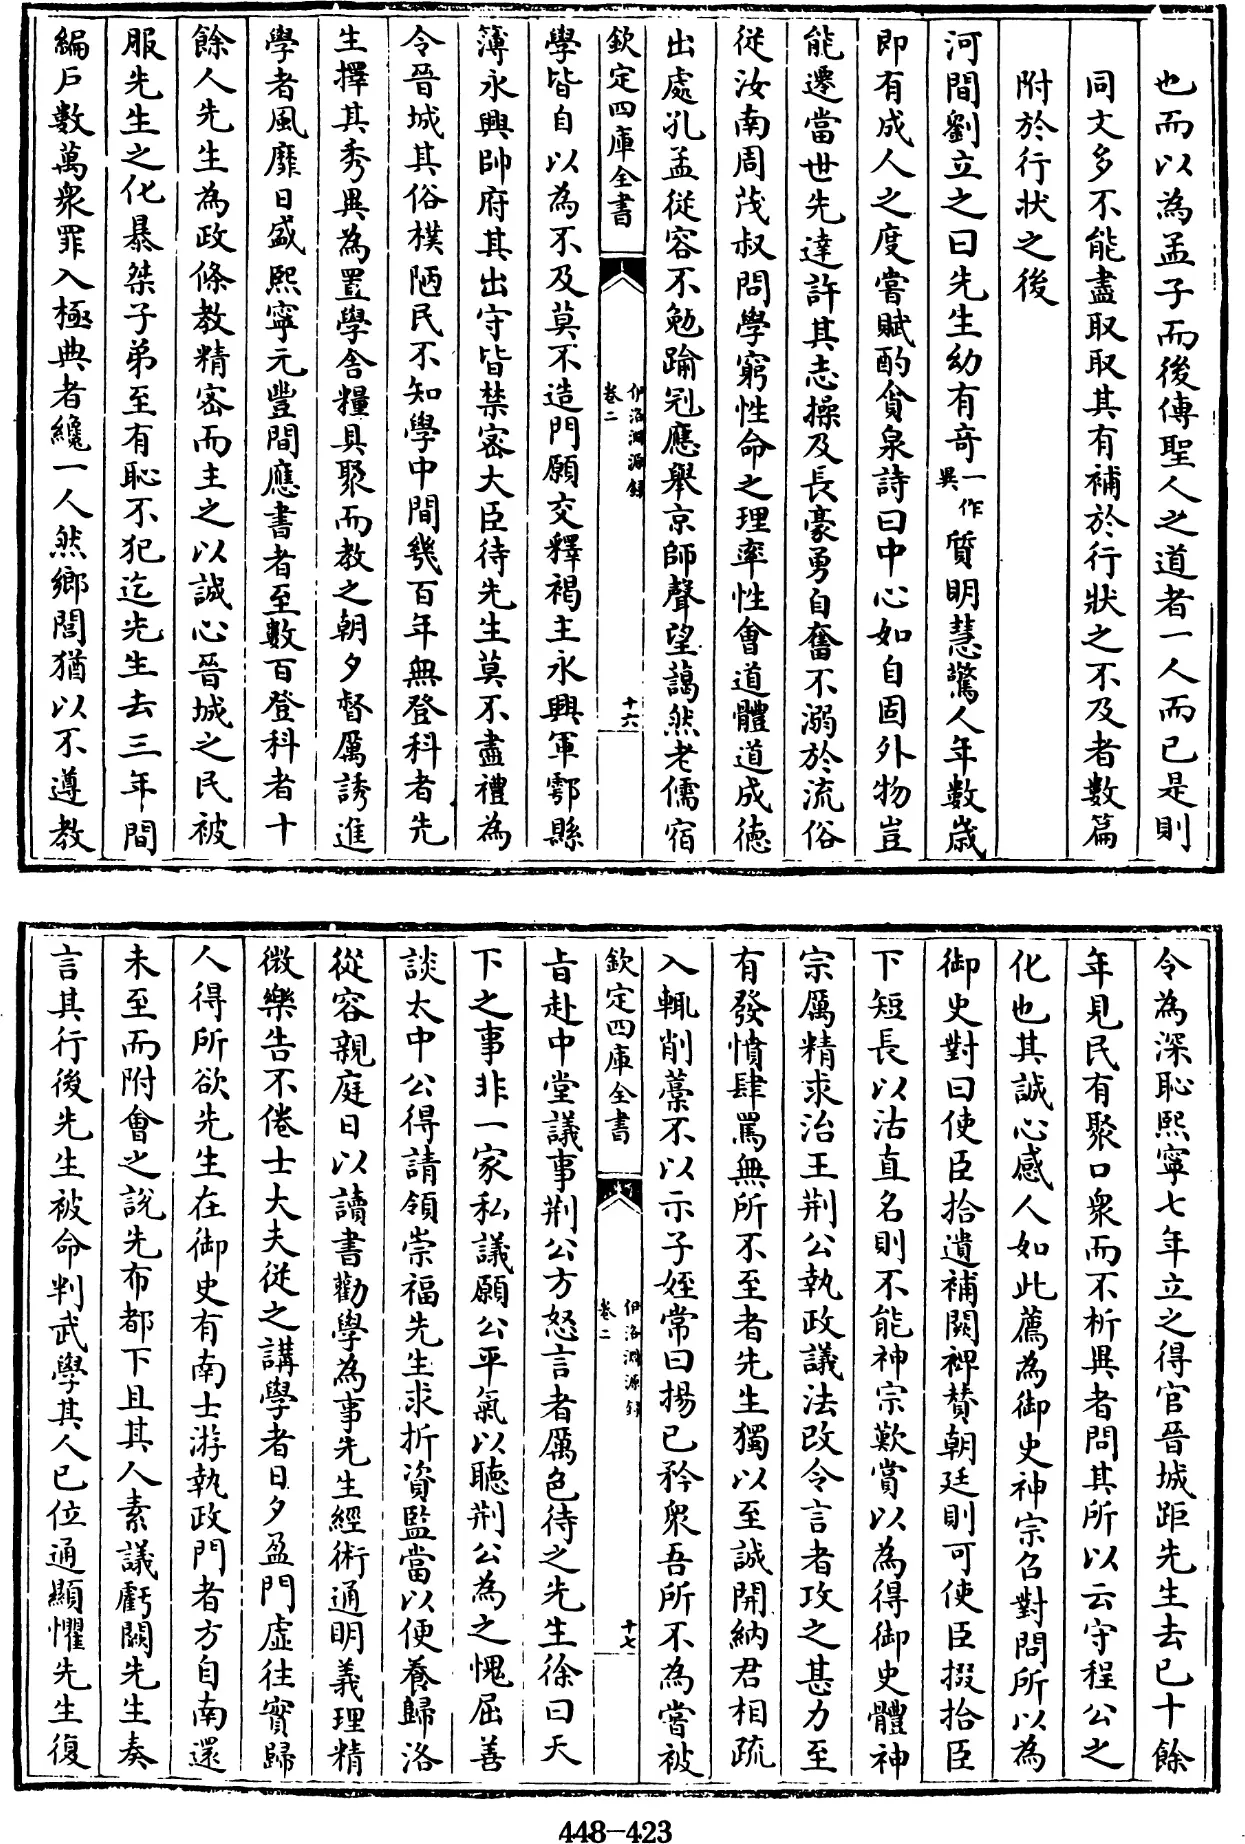 也而以為孟子而後傳聖人之道者一人而已是則
同文多不能盡取取其有補於行狀之不及者數篇
附於行狀之後
河間劉立之曰先生幼有奇一作異質明慧驚人年數歲
即有成人之度嘗賦酌貪泉詩曰中心如自固外物豈
能遷當世先達許其志操及長豪勇自奮不溺於流俗
從汝南周茂叔問學窮性命之理率性會道體道成德
出處孔孟從容不勉踰冠應舉京師聲望藹然老儒宿
欽定四庫全書
伊洛淵源錄
卷二
十六
學皆自以為不及莫不造門願交釋褐主永興軍鄠縣
簿永興帥府其出守皆禁密大臣待先生莫不盡禮為
令晉城其俗樸陋民不知學中間幾百年無登科者先
生擇其秀異為置學舍糧具聚而教之朝夕督厲誘進
學者風靡日盛熙寧元豐間應書者至數百登科者十
餘人先生為政條教精密而主之以誠心晉城之民被
服先生之化暴桀子弟至有恥不犯迄先生去三年間
編戶數萬衆罪入極典者纔一人然鄉閭猶以不遵教
令為深恥熙寧七年立之得官晉城距先生去已十餘
年見民有聚口衆而不析異者問其所以云守程公之
化也其誠心感人如此薦為御史神宗召對問所以為
御史對曰使臣拾遺補闕裨賛朝廷則可使臣掇拾臣
下短長以沽直名則不能神宗歎賞以為得御史體神
宗厲精求治王荆公執政議法改令言者攻之甚力至
有發憤肆罵無所不至者先生獨以至誠開納君相疏
入輒削藁不以示子姪常曰揚已矜衆吾所不為嘗被
欽定四庫全書
伊洛淵源錄
卷二
十七
旨赴中堂議事荆公方怒言者厲色待之先生徐曰天
下之事非一家私議願公平氣以聽荆公為之愧屈善
談太中公得請領崇福先生求折資監當以便養歸洛
從容親庭日以讀書勸學為事先生經術通明義理精
微樂告不倦士大夫從之講學者日夕盈門虛往實歸
人得所欲先生在御史有南士游執政門者方自南還
未至而附會之說先布都下且其人素議虧闕先生奏
言其行後先生被命判武學其人已位通顯懼先生復
448-423